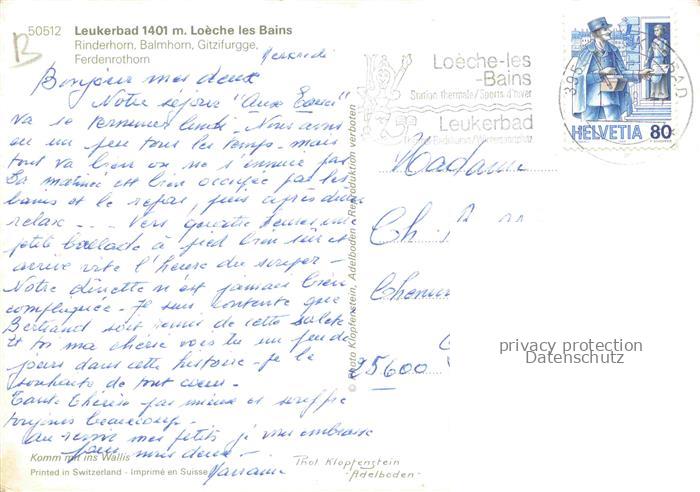 50512 Leukerbad 1401 m. Loèche les Bains
Rinderhorn, Balmhorn, Gitzifurgge,
Ferdenrothorn
B
Mercredi
Bonjour mes deux
Notre séjour "Aux Eaux"
va se terminer lundi. Nous avons
eu un peu tous les temps. mais
tout va bien on ne s'ennuie pas
La matinée est bien occupée par les
bains et le repas, puis après dîner
relax - - - Vers quatre heures une
petite ballade à pied bien sûr et
arrive vite l'heure du souper -
Notre dînette n'est jamais bien
compliquée - Je suis contente que
Bertrand soit remis de cette saleté
Et toi ma chérie vois tu un peu de
jours dans cette histoire - je le
souhaite de tout coeur -
Tante Thérèse - pas mieux et souffre
toujours beaucoup -
Au revoir mes petits je vous embrasse
tous deux -
Komm mit ins Wallis
Printed in Switzerland - Imprimé en Suisse
© Photo Klopfenstein, Adelboden Reproduktion verboten
Loèche-les
-Bains
Station thermale/Sports d'hiver
Leukerbad
395
BAD
HELVETIA 80
Madame
Ch
25600
privacy protection
Datenschutz
Phot Klopfenstein
- Adelboden -